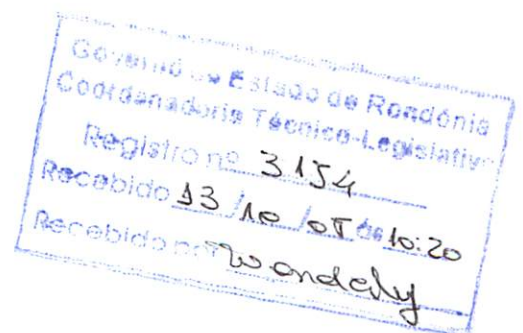 Governo do Estado de Rondônia
Coordenadoria Técnico-Legislativa
Registro nº 3154
Recebido 13/10/05 às 10:20
Recebido por Wandely